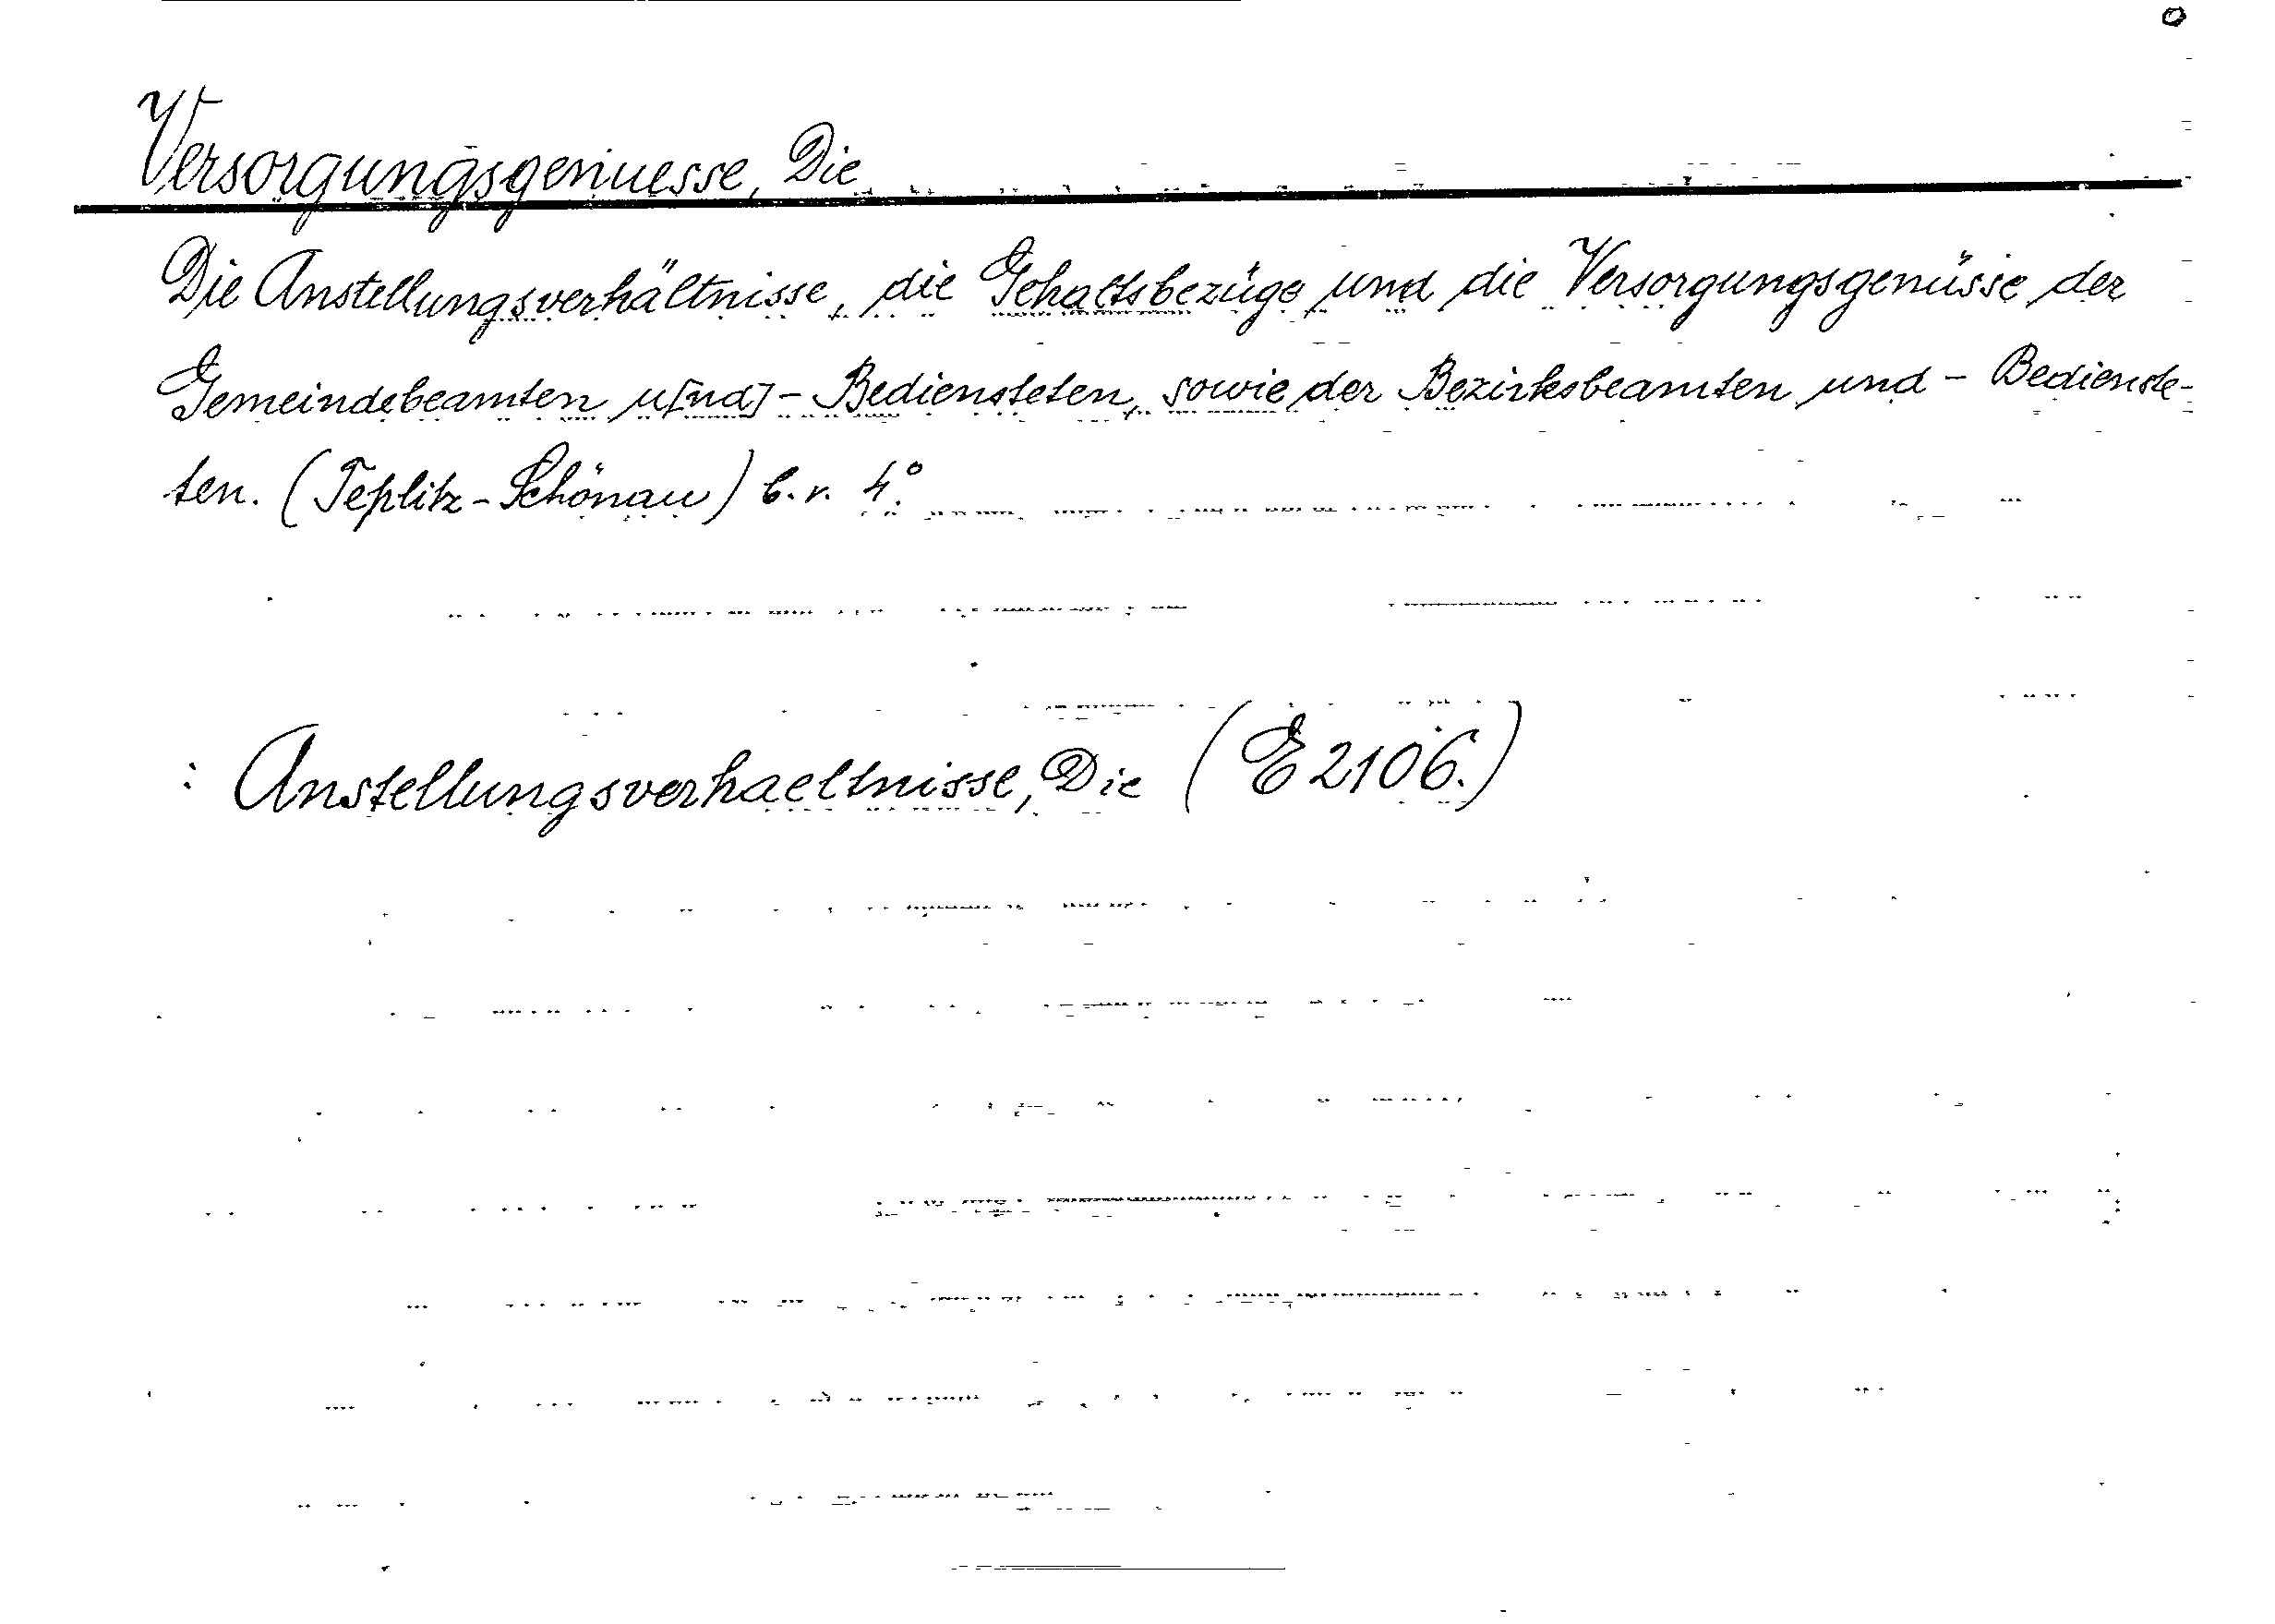 Versorgungsgenuesse, Die
Die Anstellungsverhältnisse, die Gehaltsbezüge und die Versorgungsgenüsse der
Gemeindebeamten u[nd] - Bediensteten, sowie der Bezirksbeamten und - Bedienste-
ten. (Teplitz-Schönau) 4°.
: Anstellungsverhaeltnisse, Die (E 2106.)